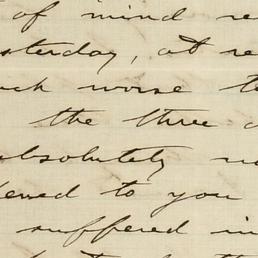 of mind re
sterday, at re
ck worse te
the three
absolutely no
dered to you
suffered in